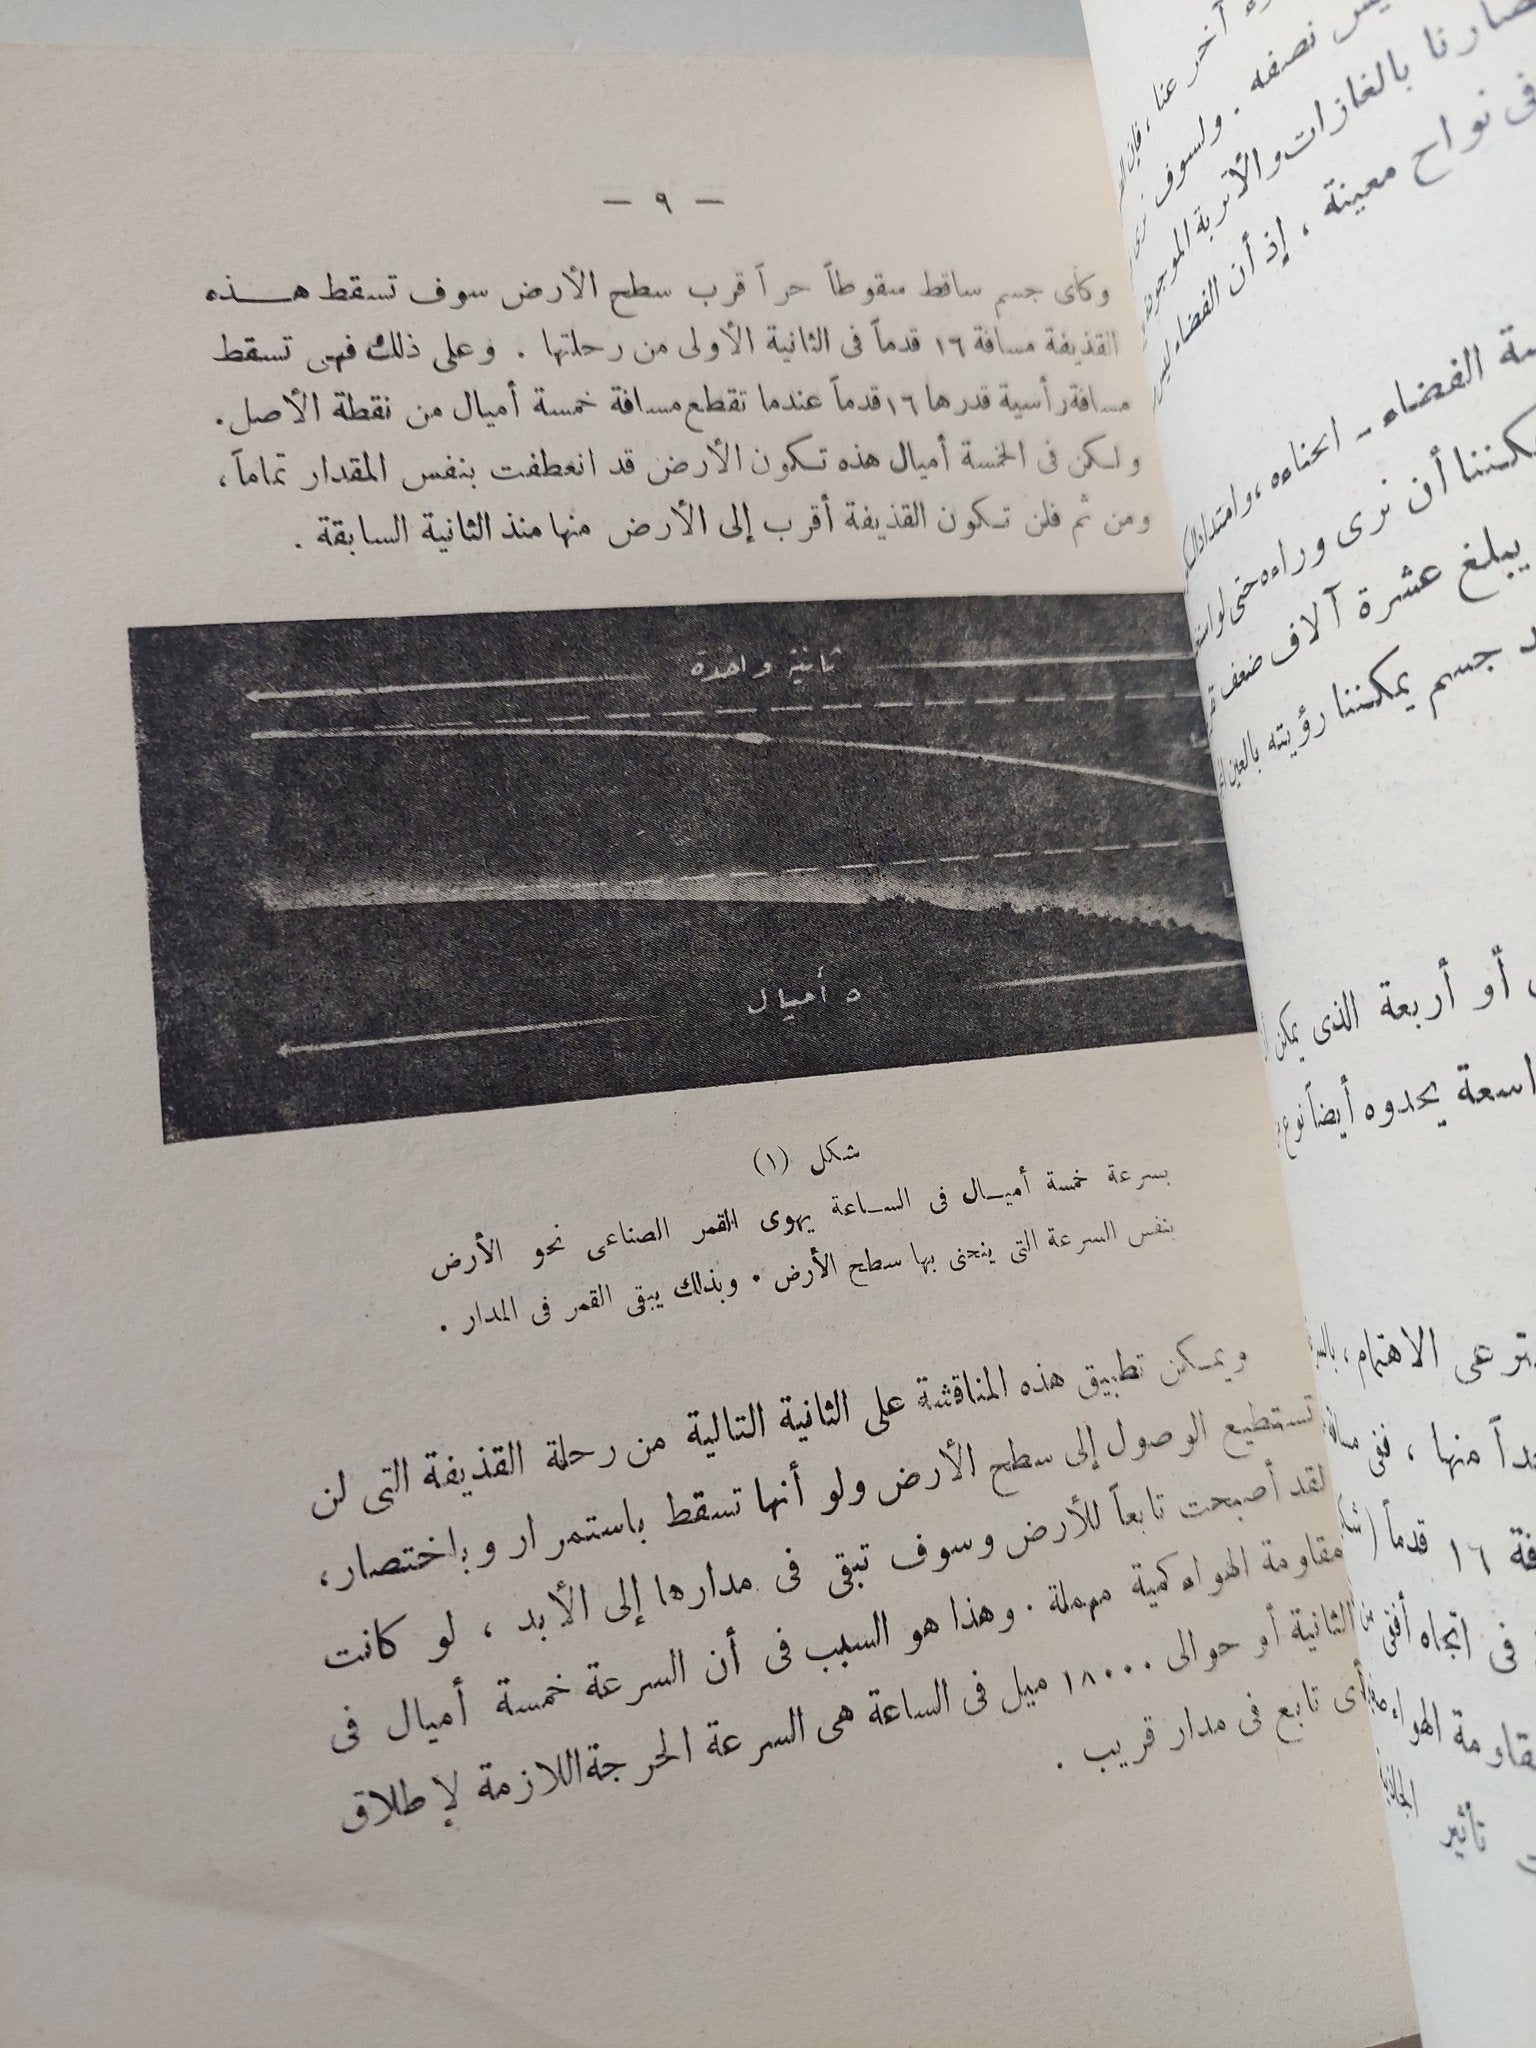 — ٩ —
وكأى جسم ساقط سقوطاً حراً قرب سطح الأرض سوف تسقط هـــذه
القذيفة مسافة ١٦ قدماً فى الثانية الأولى من رحلتها . وعلى ذلك فهى تسقط
مسافة رأسية قدرها ١٦ قدماً عندما تقطع مسافة خمسة أميال من نقطة الأصل.
ولكن فى الخمسة أميال هذه تكون الأرض قد انعطفت بنفس المقدار تماماً ،
ومن ثم فلن تكون القذيفة أقرب إلى الأرض منها منذ الثانية السابقة .
ثانية واحدة
٥ أميال
شكل (١)
بسرعة خمسة أميـال فى الساعة يهوى القمر الصناعى نحو الأرض
بنفس السرعة التى ينحنى بها سطح الأرض . وبذلك يبقى القمر فى المدار .
ويمكن تطبيق هذه المناقشة على الثانية التالية من رحلة القذيفة التى لن
تستطيع الوصول إلى سطح الأرض ولو أنها تسقط باستمرار وبإختصار،
لقد أصبحت تابعاً للأرض وسوف تبقى فى مدارها إلى الأبد ، لو كانت
مقاومة الهواء كمية مهملة . وهذا هو السبب فى أن السرعة خمسة أميال فى
الثانية أو حوالى ١٨٠٠٠ ميل فى الساعة هى السرعة الحرجة اللازمة لإطلاق
أى تابع فى مدار قريب .
آخر عنا ، فإن
نصفه . ولسوف نرى
بالغازات والأتربة
فى نواح معينة ، إذ أن الفضاء ليس
الفضاء - انحناءه ، وامتداد
يمكننا أن نرى وراءه حتى
يبلغ عشرة آلاف ضعف
جسم يمكننا رؤيته بالعين
أو أربعة الذى يمكن
يحدوه أيضاً نوع
الاهتمام ،
منها ، ففى
١٦ قدماً
فى اتجاه أفقى من
الهواء
تأثير